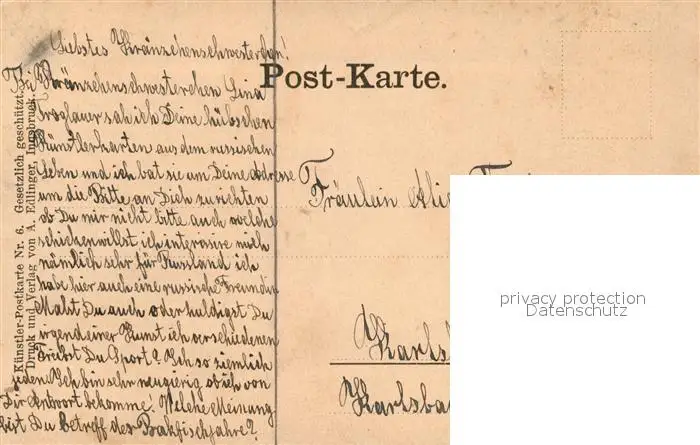 Liebstes Kränzchenschwesterchen!
Bei Kränzchenschwesterchen Lina
Troglauer sah ich Deine hübschen
Künstlerkarten aus dem russischen
Leben und ich bat sie um Deine Adresse
um die Bitte an Dich zu richten
ob Du mir nicht bitte auch welche
schicken willst ich interesire mich
nämlich sehr für Russland ich
habe hier auch eine russische Freundin
Malst Du auch oder huldigst Du
irgend einer Kunst ich verschiedenen
Treibst Du Sport? Ich so ziemlich
jeden. Ich bin sehr neugierig ob ich von
Dir Antwort bekomme! Welche Meinung
hast Du betreff der Backfischjahre?
Künstler-Postkarte Nr. 6. Gesetzlich geschützt.
Druck und Verlag von A. Edlinger, Innsbruck.
Post-Karte.
Fräulein
Karlsb
Karlsba
privacy protection
Datenschutz